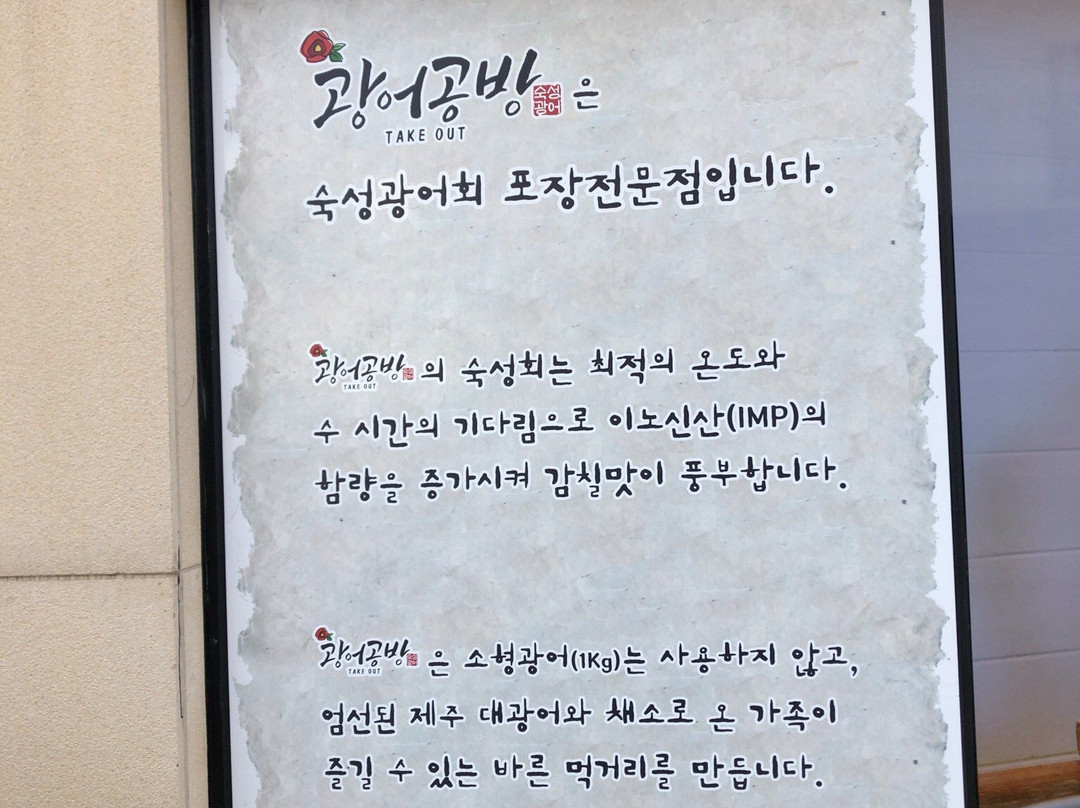 광어공방 숙성광어 은
TAKE OUT
숙성광어회 포장전문점입니다.
광어공방 의 숙성회는 최적의 온도와
TAKE OUT
수 시간의 기다림으로 이노신산(IMP)의
함량을 증가시켜 감칠맛이 풍부합니다.
광어공방 은 소형광어(1Kg)는 사용하지 않고,
TAKE OUT
엄선된 제주 대광어와 채소로 온 가족이
즐길 수 있는 바른 먹거리를 만듭니다.